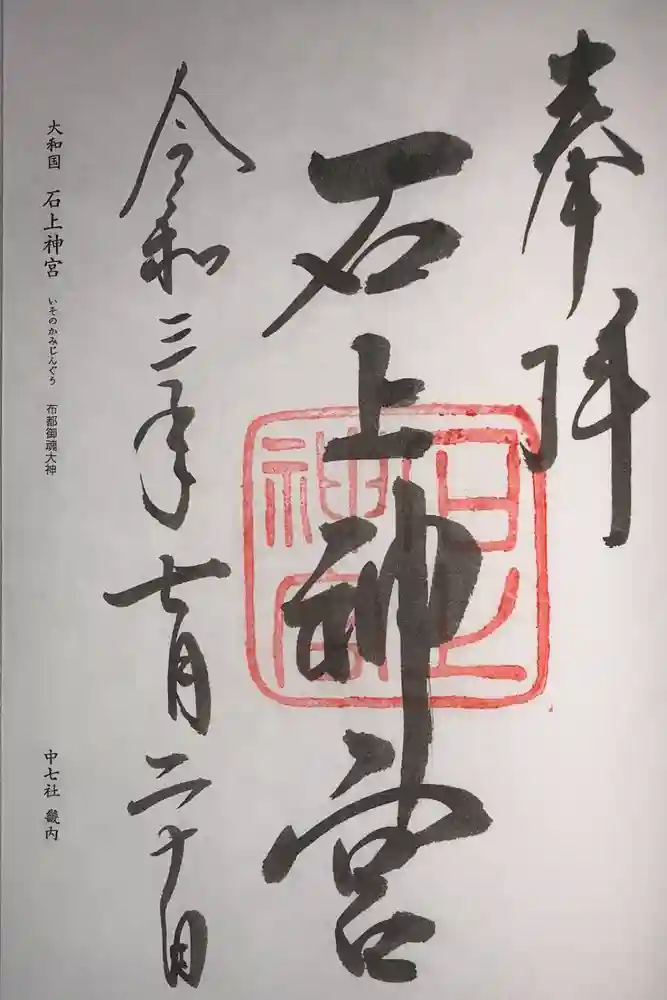 奉拝
石上神宮
石上神宮
令和三年七月二十日
大和国 石上神宮 いそのかみじんぐう 布都御魂大神
中七社 畿内